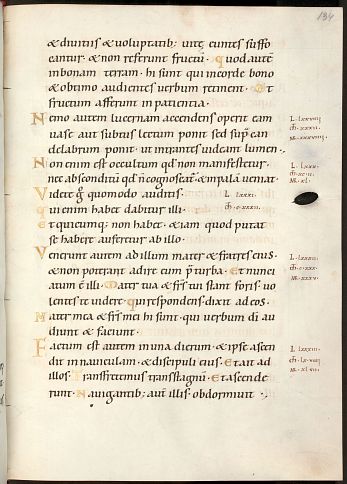 134
& diuitiis & uoluptatib; uitę euntes suffo
cantur. & non referunt fructū. Quod autē
in bonam terram. hi sunt qui in corde bono
& optimo audientes uerbum retinent. Et
fructum afferunt in patientia.
Nemo autem lucernam accendens operit eam
uase aut subtus lectum ponit sed sup can
delabrum ponit. ut intrantes uideant lumen.
Non enim est occultum qd non manifestetur.
nec absconditū qd n cognoscat & in palā ueniat.
Videte g quomodo auditis. L LXXXI.
Qui enim habet dabitur illi.
Et quicumq; non habet. & iam quod putat
se habere auferetur ab illo.
Venerunt autem ad illum mater & fratres eius
& non poterant adire eum p turba. Et nunci
atum ē illi. Mater tua & frs tui stant foris. uo
lentes te uidere. Qui respondens dixit ad eos.
Mater mea & frs mei hi sunt. qui uerbum di au
diunt & faciunt.
Factum est autem in una dierum. & ipse ascen
dit in nauiculam. & discipuli eius. Et ait ad
illos. Transfretemus trans stagnū. Et ascende
runt. Nauigantib; aut illis obdormiuit.